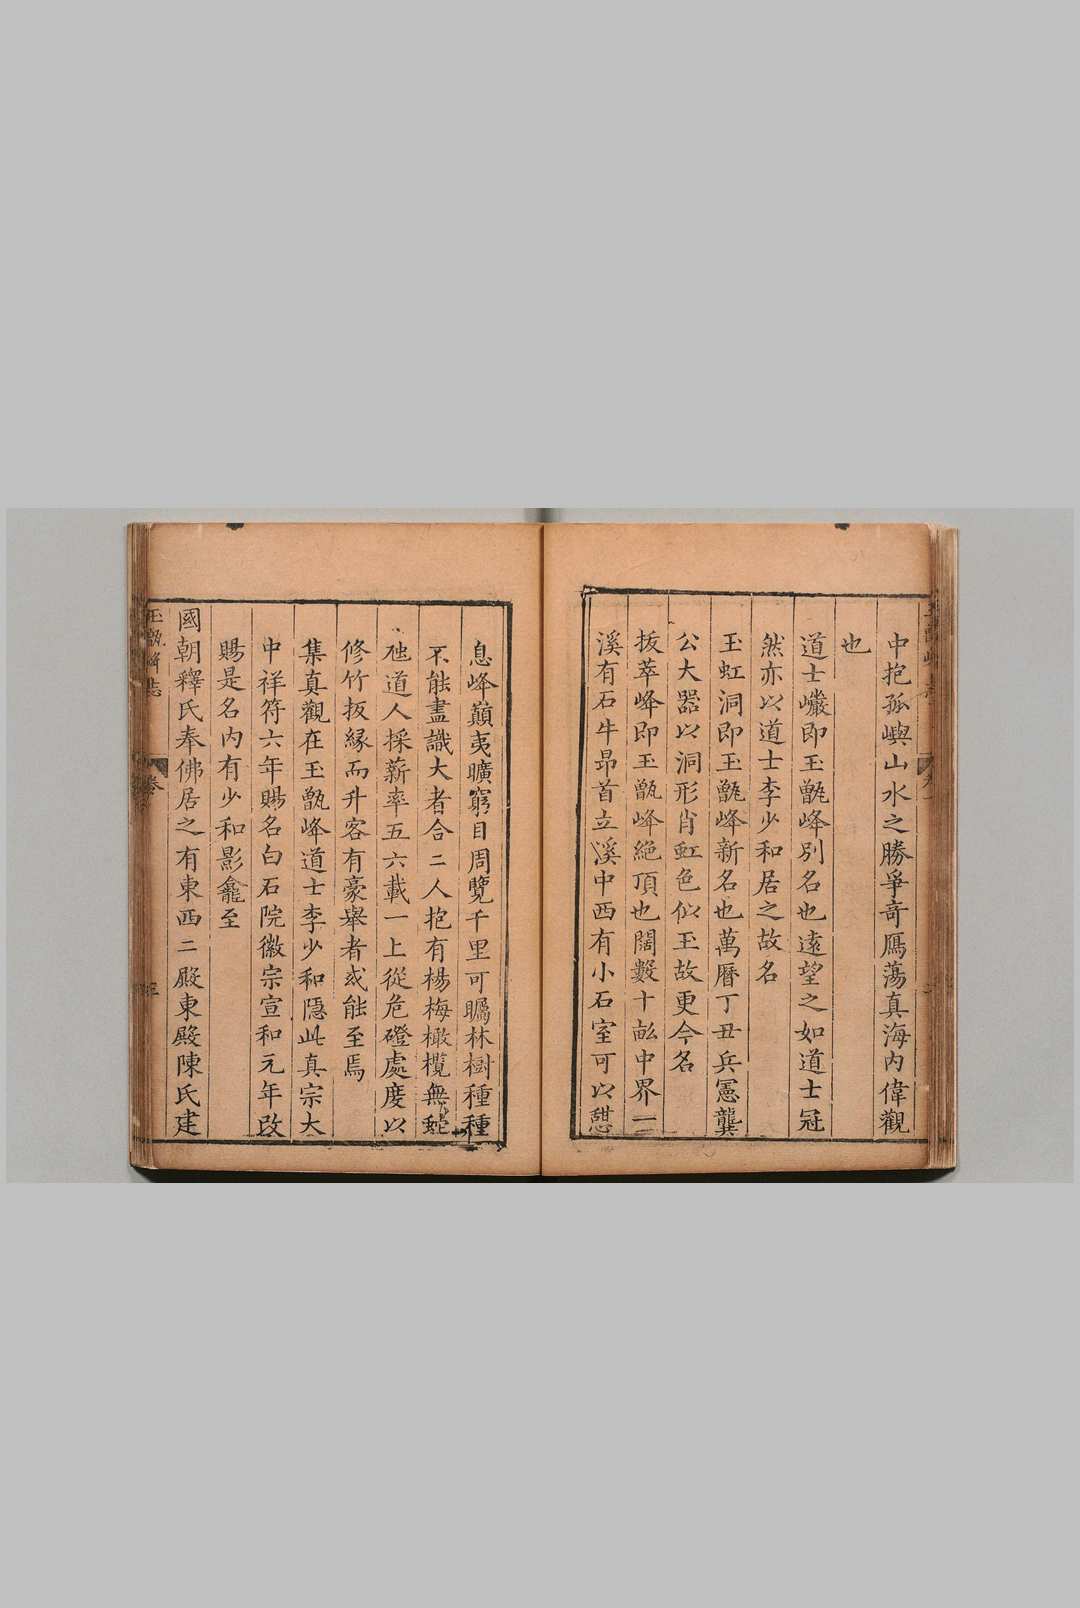 中抱孤嶼山水之勝爭竒鴈蕩真海内偉觀
也
道士巖即玉甑峰别名也遠望之如道士冠
然亦以道士李少和居之故名
玉虹洞即玉甑峰新名也萬曆丁丑兵憲龔
公大器以洞形肖虹色似玉故更今名
拔萃峰即玉甑峰絶頂也闊數十畝中界一
溪有石牛昂首立溪中西有小石室可以憇
息峰巔夷曠窮目周覽千里可矚林樹種種
不能盡識大者合二人抱有楊梅橄欖無蛇
虺道人採薪率五六載一上從危磴處度以
修竹扳緣而升客有豪舉者或能至焉
集真觀在玉甑峰道士李少和隱此真宗大
中祥符六年賜名白石院徽宗宣和元年改
賜是名内有少和影龕至
國朝釋氏奉佛居之有東西二殿東殿陳氏建
玉甑峰志
卷